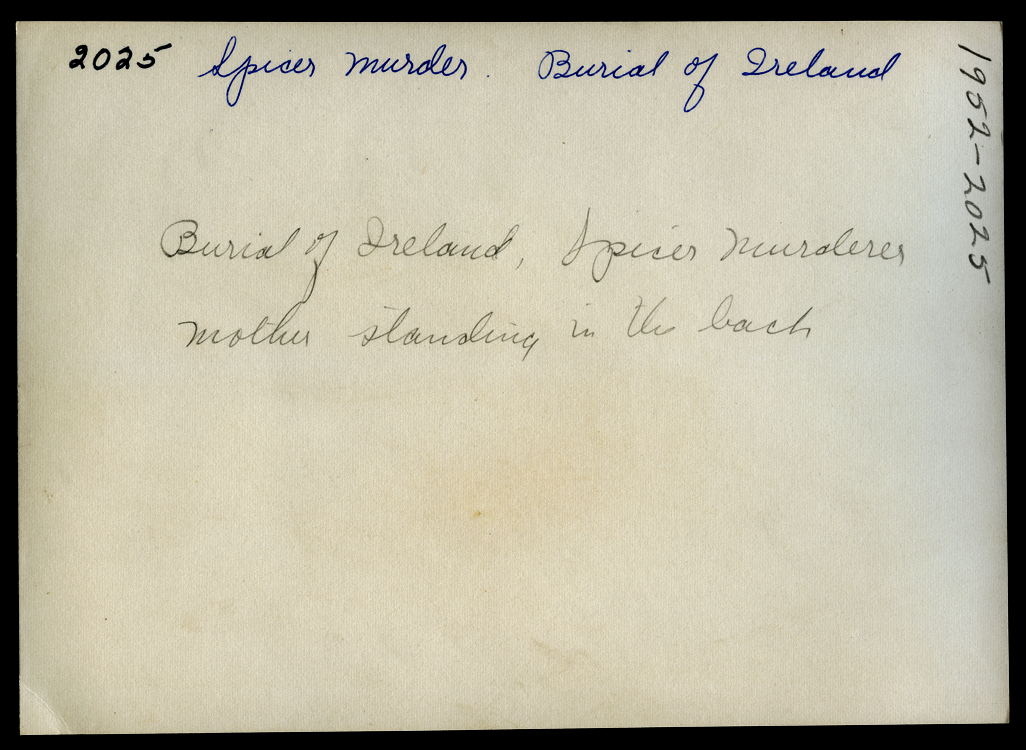 2025 Spicer Murder. Burial of Ireland
1952-2025
Burial of Ireland, Spicer Murderer
mother standing in the back